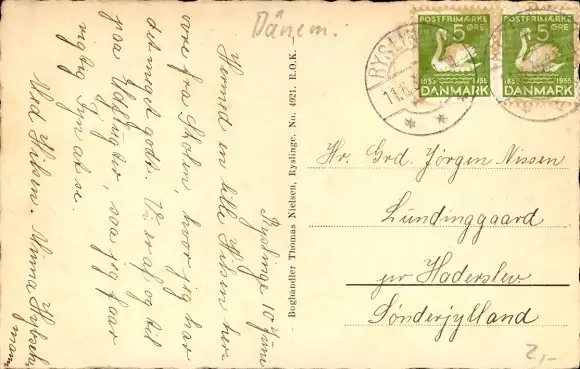 Dänem.
POSTFRIMÆRKE
5
ØRE
1835
1935
DANMARK
POSTFRIMÆRKE
5
ØRE
1835
1935
DANMARK
RYSLINGE
11.6.
Ryslinge 10 Juni
Hermed en lille Hilsen her-
ovre fra Skolen, hvor jeg har
det meget godt. Vi er af og til
paa Udflugter, saa jeg faar
rigtig Fyn at se.
Med Hilsen. Minna
Boghandler Thomas Nielsen, Ryslinge. No. 4921. E.O.K.
Hr. Grd. Jørgen Nissen
Lundinggaard
pr Haderslev
Sønderjylland
2,-